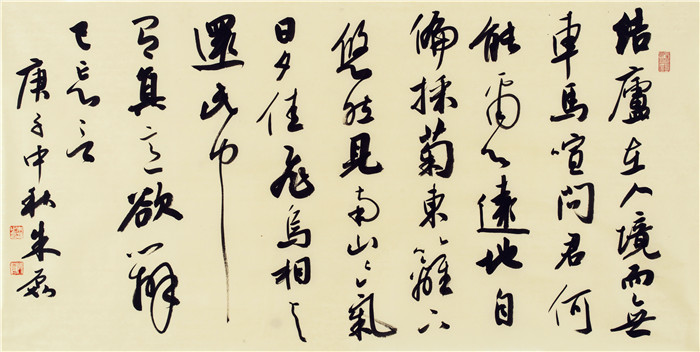 結廬在人境而無
車馬喧問君何
能爾心遠地自
偏採菊東籬下
悠然見南山山氣
日夕佳飛鳥相與
還此中
有真意欲辨
已忘言
庚子中秋朱